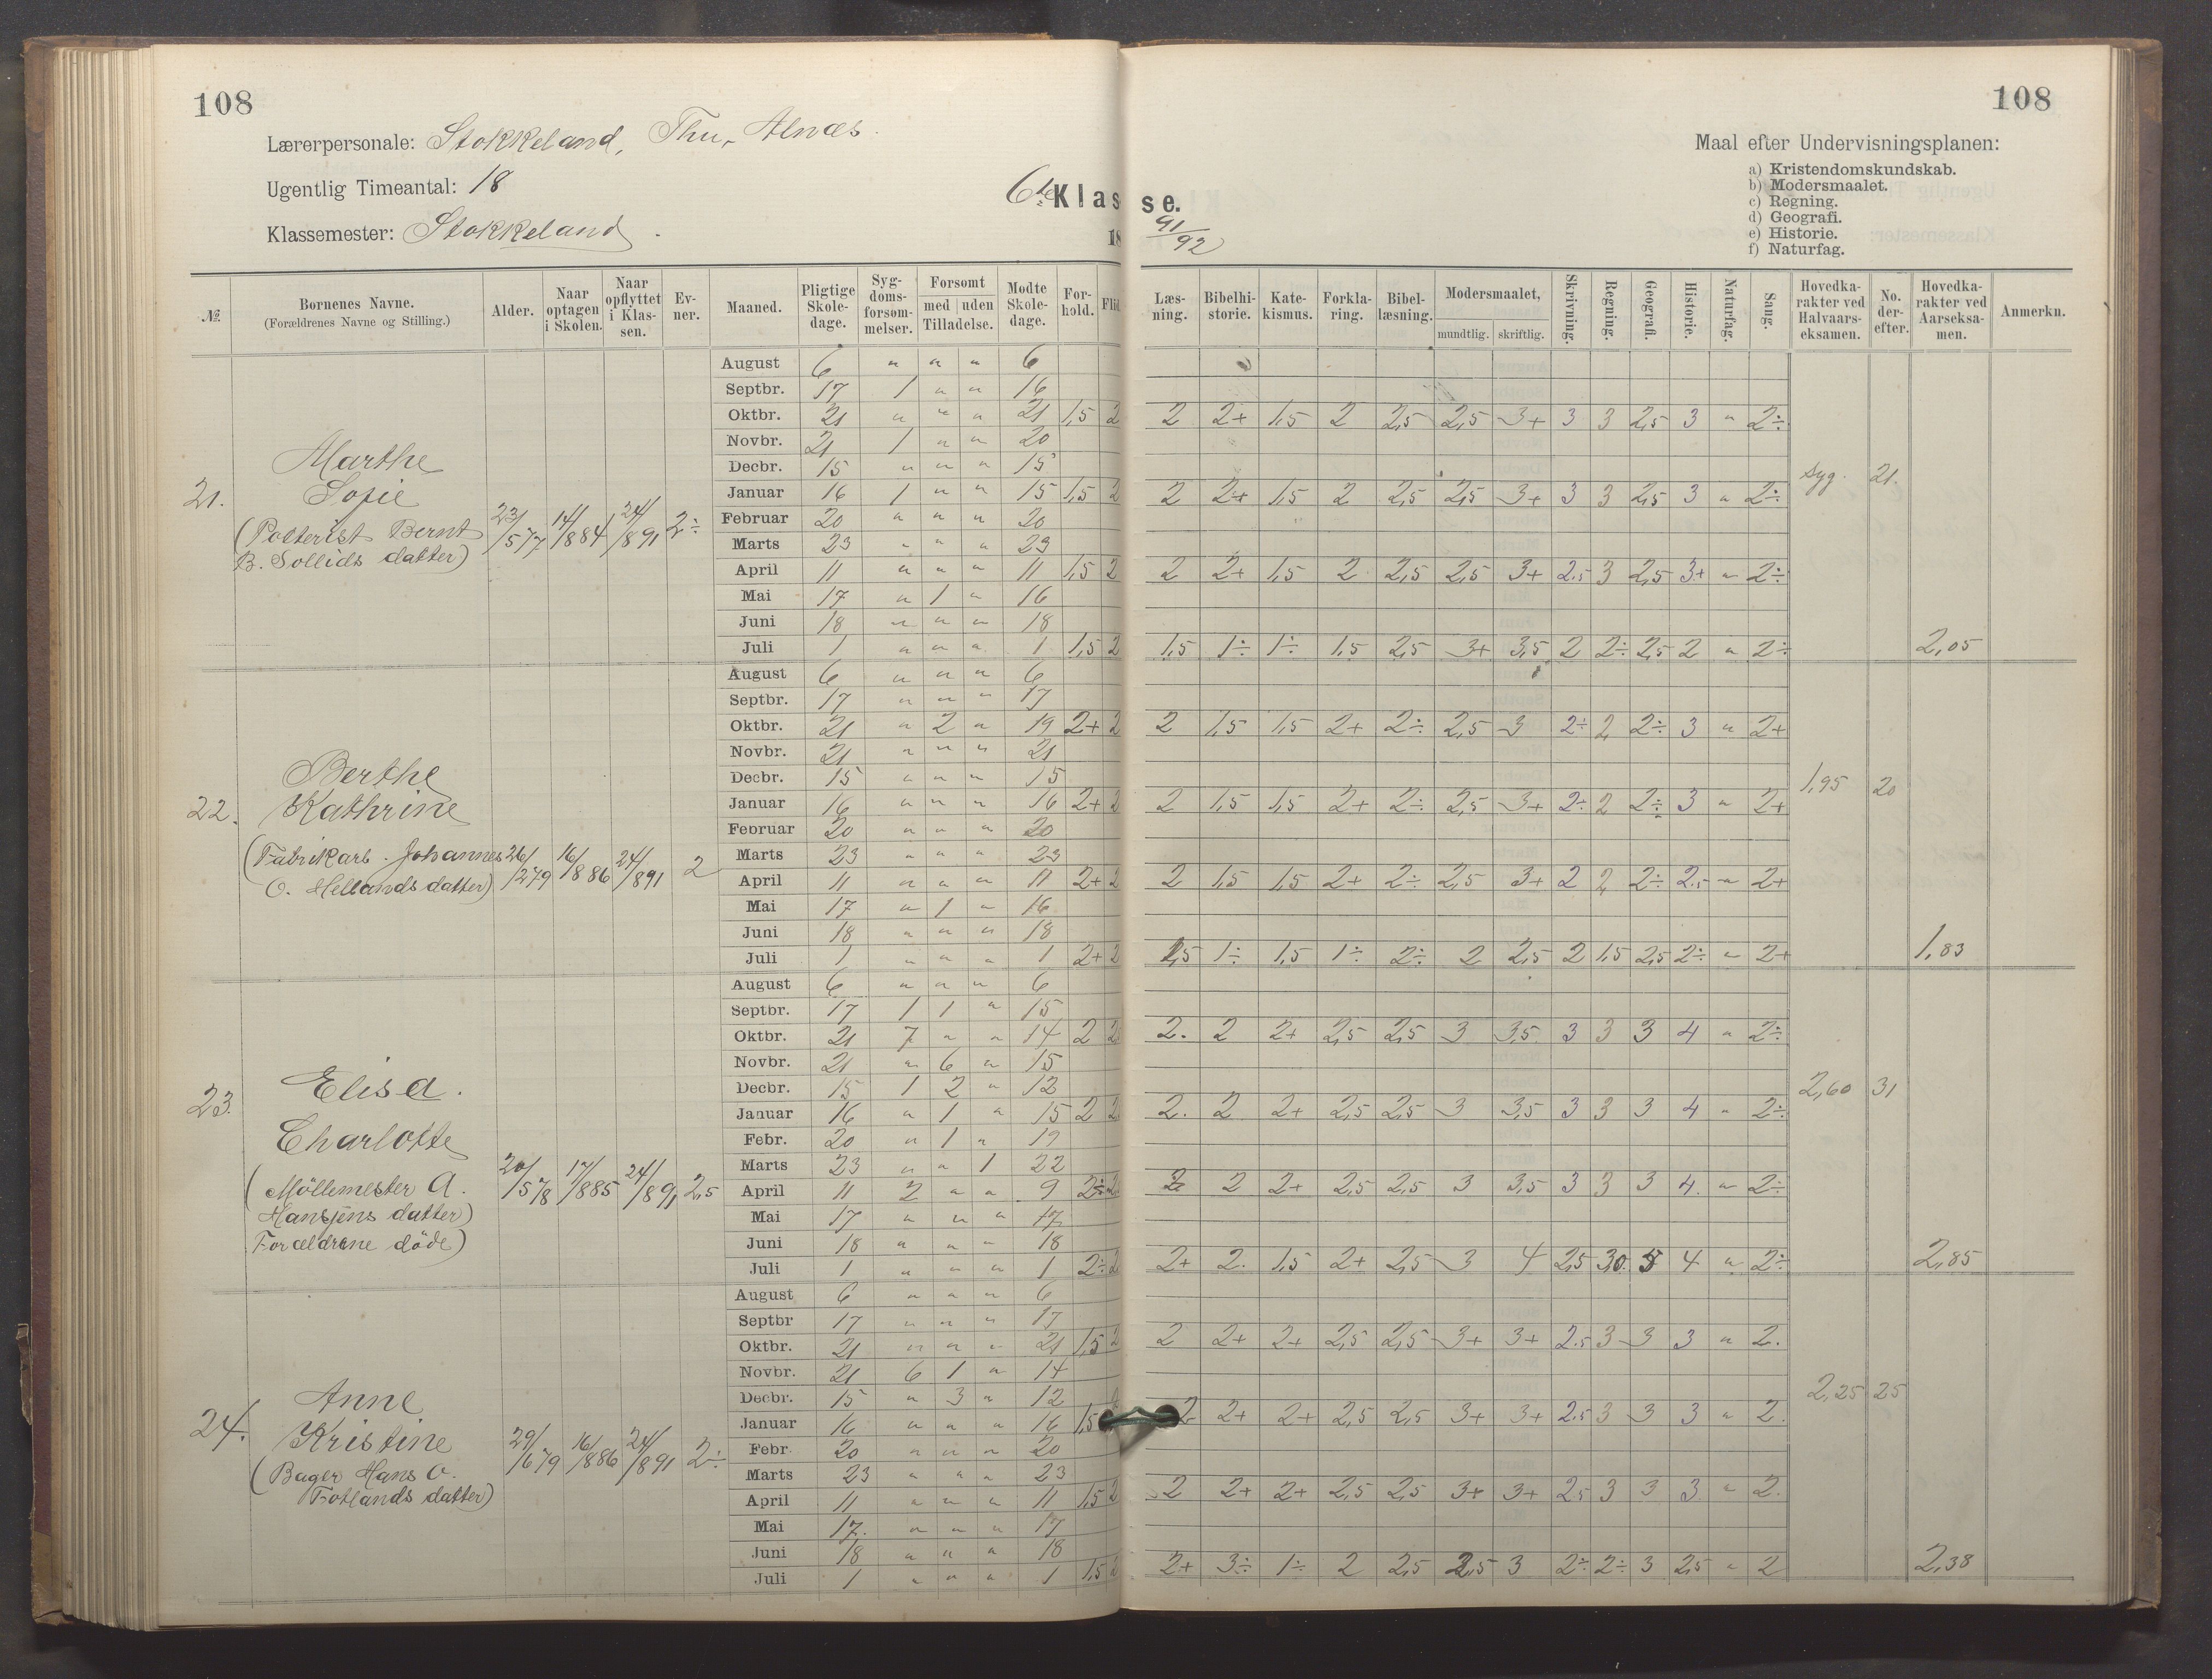 108
108
Lærerpersonale: Stokkeland, Thu, Alnæs.
Ugentlig Timeantal: 18
Klassemester: Stokkeland
6te Klasse.
18 91/92
Maal efter Undervisningsplanen:
a) Kristendomskundskab.
b) Modersmaalet.
c) Regning.
d) Geografi.
e) Historie.
f) Naturfag.
№. Børnenes Navne. (Forældrenes Navne og Stilling.) Alder. Naar optagen i Skolen. Naar opflyttet i Klassen. Evner. Maaned. Pligtige Skoledage. Sygdomsforsømmelser. Forsømt med uden Tilladelse. Mødte Skoledage. Forhold. Flid Læsning. Bibelhistorie. Katekismus. Forklaring. Bibellæsning. Modersmaalet, mundtlig. skriftlig. Skrivning. Regning. Geografi. Historie. Naturfag. Sang. Hovedkarakter ved Halvaarseksamen. No. derefter. Hovedkarakter ved Aarseksamen. Anmerkn.
21. Marthe Sofie
(Politerist Bernt
B. Sollids datter)
23/5 77 14/8 84 24/8 91 2÷
August 6 " " " 6
Septbr. 17 1 " " 16
Oktbr. 21 " " " 21 1,5 2 2 2+ 1,5 2 2,5 2,5 3+ 3 3 2,5 3 " 2÷
Novbr. 21 1 " " 20
Decbr. 15 " " " 15
syg. 21.
Januar 16 1 " " 15 1,5 2 2 2+ 1,5 2 2,5 2,5 3+ 3 3 2,5 3 " 2÷
Februar 20 " " " 20
Marts 23 " " " 23
April 11 " " " 11 1,5 2 2 2+ 1,5 2 2,5 2,5 3+ 2,5 3 2,5 3+ " 2÷
Mai 17 " 1 " 16
Juni 18 " " " 18
Juli 1 " " " 1 1,5 2 1,5 1÷ 1÷ 1,5 2,5 3+ 3,5 2 2÷ 2,5 2 " 2÷ 2,05
22. Berthe Kathrine
(Fabrikarb. Johannes
O. Hellands datter)
26/2 79 16/8 86 24/8 91 2
August 6 " " " 6
Septbr. 17 " " " 17
Oktbr. 21 " 2 " 19 2+ 2 2 1,5 1,5 2+ 2÷ 2,5 3 2÷ 2 2÷ 3 " 2+
Novbr. 21 " " " 21
Decbr. 15 " " " 15
1,95 20
Januar 16 " " " 16 2+ 2 2 1,5 1,5 2+ 2÷ 2,5 3+ 2÷ 2 2÷ 3 " 2+
Februar 20 " " " 20
Marts 23 " " " 23
April 11 " " " 11 2+ 2 2 1,5 1,5 2+ 2÷ 2,5 3+ 2 2 2÷ 2,5 " 2+
Mai 17 " 1 " 16
Juni 18 " " " 18
Juli 1 " " " 1 2+ 2 1,5 1÷ 1,5 1÷ 2÷ 2 2,5 2 1,5 2,5 2÷ " 2+ 1,83
23. Elisa. Charlotte
(Möllemester A.
Hansens datter)
Forældrene döde)
20/5 78 17/8 85 24/8 91 2,5
August 6 " " " 6
Septbr. 17 1 1 " 15
Oktbr. 21 7 " " 14 2 2 2. 2 2+ 2,5 2,5 3 3,5 3 3 3 4 " 2÷
Novbr. 21 " 6 " 15
Decbr. 15 1 2 " 12
2,60 31
Januar 16 " 1 " 15 2 2 2. 2 2+ 2,5 2,5 3 3,5 3 3 3 4 " 2÷
Febr. 20 " 1 " 19
Marts 23 " " 1 22
April 11 2 " " 9 2÷ 2 2 2 2+ 2,5 2,5 3 3,5 3 3 3 4. " 2÷
Mai 17 " " " 17
Juni 18 " " " 18
Juli 1 " " " 1 2÷ 2 2+ 2. 1,5 2+ 2,5 3 4 2,5 30. 5 4 " 2÷ 2,85
24. Anne Kristine
(Bager Hans O.
Fotlands datter)
29/6 79 16/8 86 24/8 91 2÷
August 6 " " " 6
Septbr 17 " " " 17
Oktbr. 21 " " " 21 1,5 2 2 2+ 2+ 2,5 2,5 3+ 3+ 2,5 3 3 3 " 2.
Novbr. 21 6 1 " 14
Decbr. 15 " 3 " 12
2,25 25
Januar 16 " " " 16 1,5 2 2+ 2+ 2,5 2,5 3+ 3+ 2,5 3 3 3 " 2.
Febr. 20 " " " 20
Marts 23 " " " 23
April 11 " " " 11 1,5 2 2 2+ 2+ 2,5 2,5 3+ 3+ 2,5 3 3 3 " 2.
Mai 17. " " " 17
Juni 18 " " " 18
Juli 1 " " " 1 1,5 2 2+ 3÷ 1÷ 2 2,5 2,5 3 2÷ 2÷ 3 2,5 " 2 2,38